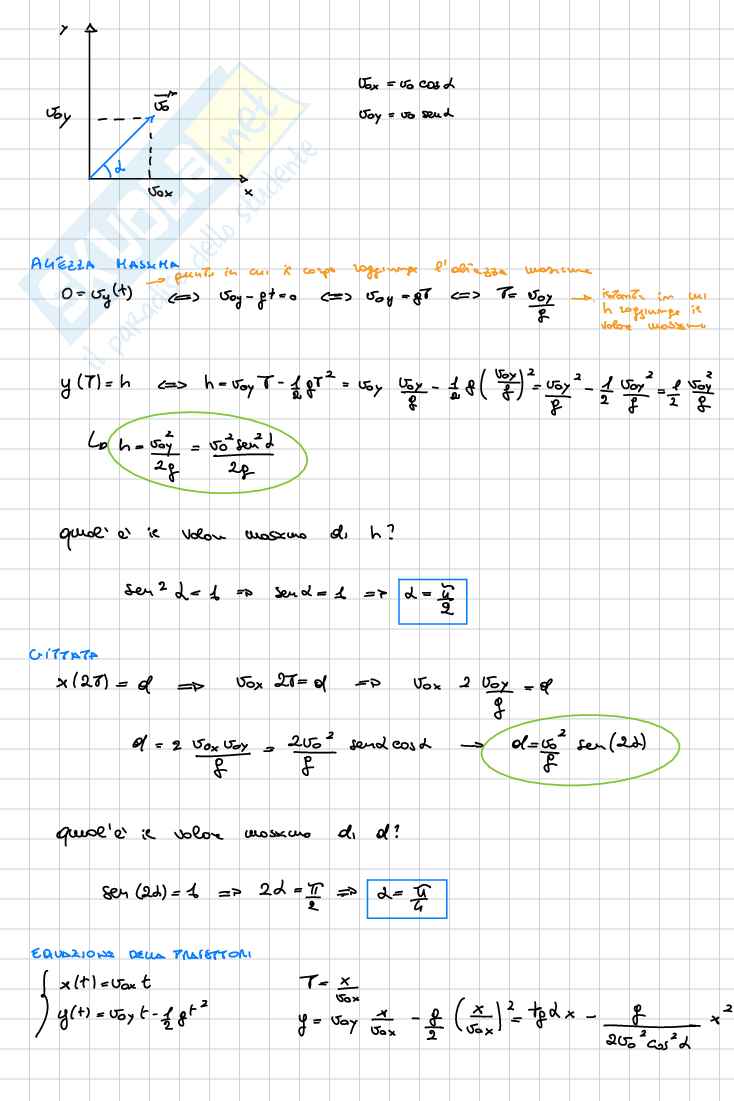 y
v0y
v0
α
v0x
x
v0x = v0 cosα
v0y = v0 senα
SKUOLA.net
il paradiso dello studente
ALTEZZA MASSIMA
→ punto in cui il corpo raggiunge l'altezza massima
0 = vy(t) ⟺ v0y - gt = 0 ⟺ v0y = gT ⟺ T = v0y/g → istante in cui
h raggiunge il
valore massimo
y(T) = h ⟺ h = v0y T - 1/2 gT² = v0y v0y/g - 1/2 g (v0y/g)² = v0y²/g - 1/2 v0y²/g = 1/2 v0y²/g
↳ h = v0y²/2g = v0² sen²α/2g
qual'è il valore massimo di h?
sen²α = 1 ⇒ senα = 1 ⇒ α = π/2
GITTATA
x(2T) = d ⇒ v0x 2T = d ⇒ v0x 2 v0y/g = d
d = 2 v0x v0y/g = 2v0²/g senα cosα → d = v0²/g sen(2α)
qual'è il valore massimo di d?
sen(2α) = 1 ⇒ 2α = π/2 ⇒ α = π/4
EQUAZIONE DELLA TRAIETTORI
x(t) = v0x t
T = x/v0x
y(t) = v0y t - 1/2 gt²
y = v0y x/v0x - g/2 (x/v0x)² = tgα x - g/2v0² cos²α x²